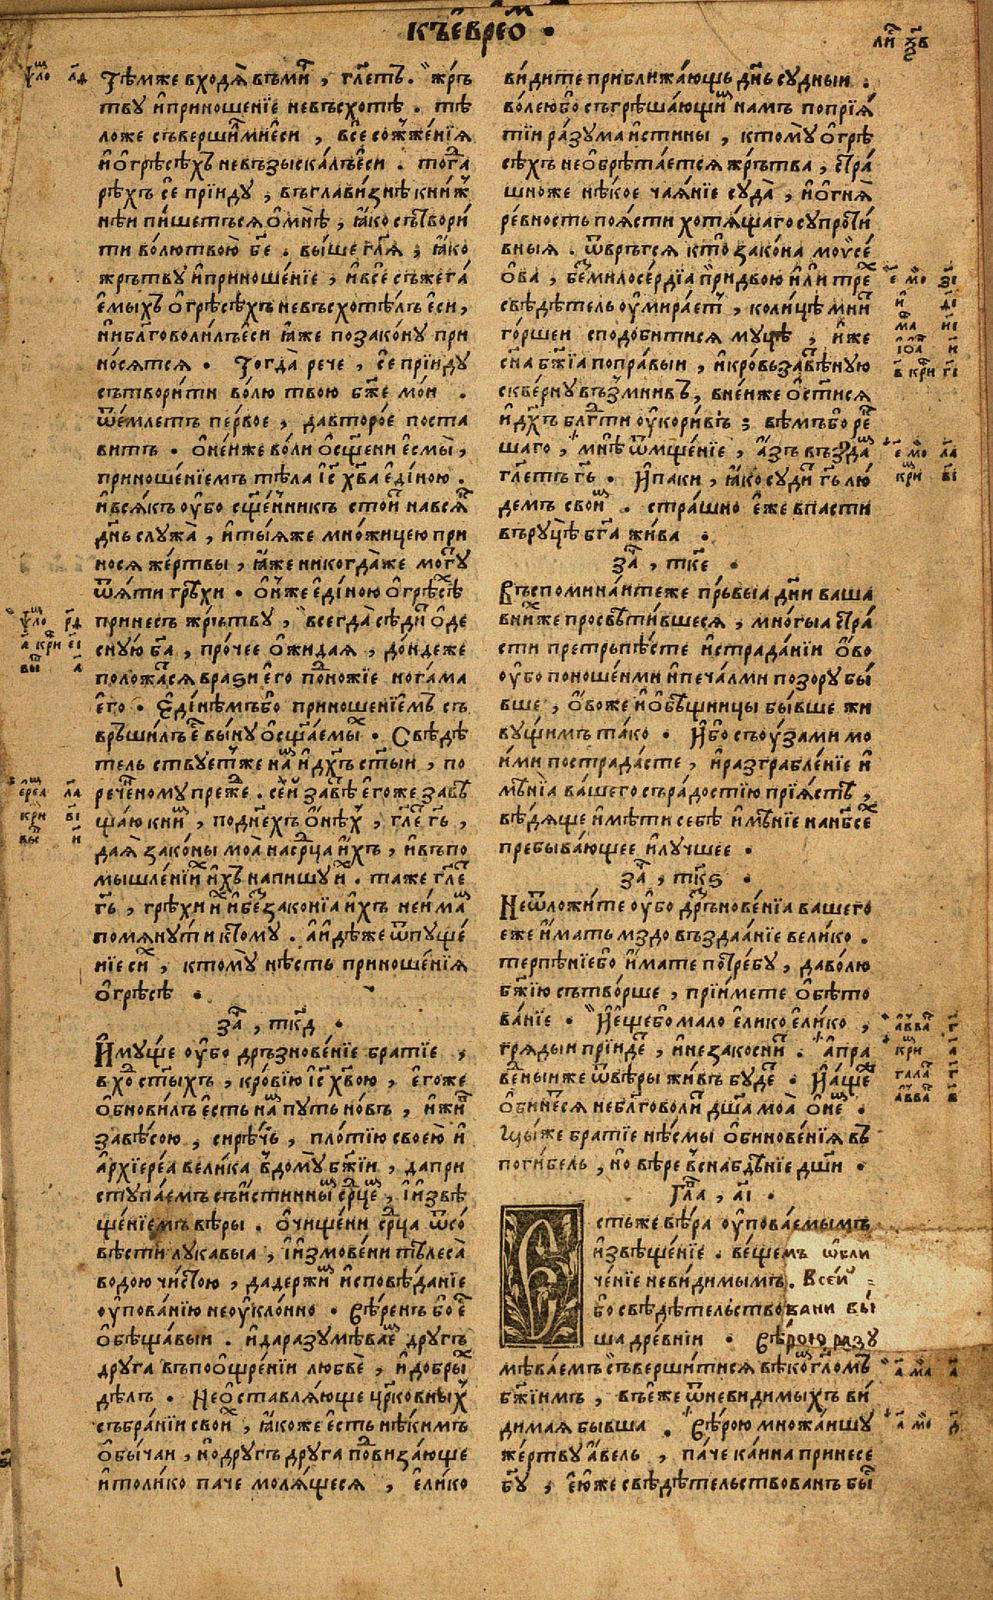 къ є҆врео м .
ли́ ѯ҃в
Тѣ́мже входѧ̀ въ ми́ръ , гл҃етъ . жръ
тву и҆ приношенїе не въсхотѣ . тѣ
ло же съверши́лъ ми є҆си , всесожже́нїѧ
и҆ ѡ҆ грѣсѣ́хъ не възыска́лъ є҆си . тогда̀
рѣ́хъ се прїиду , въ главизнѣ книж
нѣи пи́шетъсѧ ѡ҆ мнѣ̀ , ꙗ҆ко сътвори
ти во́лю твою̀ бж҃е . выше гл҃ѧ , ꙗ҆ко
жрътву и҆ приноше́нїе , и҆ всесъжега
є́мыхъ ѡ҆ грѣсѣ́хъ не въсхотѣ́лъ є҆си ,
ни бл҃говоли́лъ є҆си ꙗ҆же по зако́ну при
но́сѧтсѧ . Тогда̀ рече , се прїиду
сътвори́ти во́лю твою бж҃е мои .
ѿе́млетъ пе́рвое , да второ́е поста
витъ . ѡ҆ не́иже во́ли ѡ҆сщ҃ени є҆смы̀ ,
приноше́нїемъ тѣ́ла і҆с х҃ва є҆ди́ною .
и҆ всѧ́къ оу҆бо сщ҃е́нникъ стои́тъ на всѧ́къ
дн҃ь служа̀ , и҆ ты́ѧже мно́жицею при
носѧ же́ртвы , ꙗ҆же никогда́же мо́гутъ
ѿѧ́ти грѣхи . ѡ҆нже є҆ди́ною ѡ҆ грѣсѣ́хъ
принесъ жрътву , всегда̀ сѣди́тъ ѡ҆де
сную̀ б҃а , про́чее ѡ҆жидаѧ , до́ндеже
положа́тсѧ враѕи є҆го̀ подно́жїе нога́ма
є҆го̀ . Єди́нѣмъ бо приноше́нїемъ съ
връши́лъ є҆ вы́ну ѡ҆сщ҃а́емыхъ . Свѣдѣ
тельствуетже намъ и҆ дх҃ъ ст҃ы́и , по
рече́нному пре́же . се́й завѣ́тъ є҆го́же завѣ
ща́ю к ни́мъ , по дне́хъ ѡ҆нѣ́хъ , гл҃етъ гь҃ ,
даѧ̀ зако́ны моѧ̀ на ср҃ца и҆хъ , и҆ въ по
мышле́нїихъ и҆хъ напишу и҆хъ . таже гл҃етъ
гь҃ , грѣхи и҆хъ и҆ беззако́нїѧ и҆хъ не и҆мамъ
помѧну́ти к то́му . а҆ идѣ́же ѿпуще́
нїе си́хъ , к тому̀ нѣ́сть приноше́нїѧ
ѡ҆ грѣсѣ .
за҃ , тк҃д .
И҆му́ще оу҆бо дръзнове́нїе бра́тїе ,
вхо́дъ ст҃ы́хъ , кро́вїю і҆с х҃во́ю , є҆го́же
ѡ҆бнови́лъ є҆сть намъ пу́ть но́въ , и҆ жи́въ
завѣ́сою , си́рѣчь , пло́тїю своею̀ и҆
а҆рхїере́а вели́ка в дому̀ бж҃їи , да при
ступа́емъ съ и҆́стиннымъ ср҃цемъ , і҆ и҆звѣ
ще́нїемъ вѣ́ры . ѡ҆чище́ни ср҃ца ѿ со́
вѣсти лука́выа , і҆ и҆змове́ни тѣлеса̀
водо́ю чи́стою , да держи́мъ и҆сповѣ́данїе
оу҆пова́нїю неоукло́нно . вѣ́ренъ бо є҆
ѡ҆бѣща́выи . и҆ да разумѣва́емъ дру́гъ
дру́га въ поѡщре́нїи любвѐ , и҆ до́брыхъ
дѣ́лъ . Не ѡ҆ставлѧ́юще цр҃ко́вныхъ
събра́нїи свои́хъ , ꙗ҆коже є҆сть нѣ́кимъ
ѡ҆бы́чаи , но дру́гъ дру́га подвиза́юще
и҆ толи́ко па́че молѧ́щесѧ , є҆ли́ко
ви́дите приближа́ющь дн҃ь су́дныи .
во́лею бо съгрѣша́ющимъ намъ по прїѧ́
тїи ра́зума и҆́стины , к тому̀ ѡ҆ грѣ
сѣ́хъ не ѡ҆брѣта́етсѧ жръ́тва , стра́
шно же нѣ́кое ча́ѧнїе суда̀ , и҆ ѻ҆гнѧ̀
ре́вность поѧ́сти хотѧ́щаго супроти́
вныѧ . ѿвръ́гсѧ кто̀ зако́на моѵ̈се́
ѡва , без милосе́рдїа при двою̀ и҆ли трехъ
свѣдѣтель оу҆мира́етъ , коли́цѣ мни́те
го́ршеи сподо́битисѧ му́цѣ , и҆же
сн҃а бж҃їа попра́выи , и҆ кро́вь завѣ́тную
скве́рну възмни́въ , в не́иже ѡ҆ст҃и́сѧ
и҆ дх҃ъ бл҃гти оу҆кори́въ ; вѣ́мъ бо ре́к
шаго , мнѣ̀ ѿмще́нїе , а҆зъ възда́мъ
гл҃етъ гь҃ . И҆ па́ки , ꙗ҆ко су́дитъ гь҃ лю
демъ свои́мъ . стра́шно є҆же впа́сти
въ ру́цѣ б҃га жи́ва .
за҃ , тк҃е .
Въспомина́итеже пръ́выѧ дн҃и ва́ша
в ни́хже просвѣти́вшесѧ , мно́гыа стра́
сти претръпѣ́сте и҆ страда́нїи ѡ҆во
оу҆бо поноше́нми и҆ печа́лми позо́ру бы́
вше , ѡ҆во́же и҆ ѡ҆бщницы бы́вше жи
ву́щимъ та́ко . И҆бо съ оу҆́зами мо
и́ми пострада́сте , и҆ разграбле́нїе и҆
мѣ́нїа ва́шего съ ра́достїю прїѧ́сте ,
вѣ́дѧще и҆мѣ́ти себѣ̀ и҆мѣ́нїе на нб҃сѣ́хъ
пребыва́ющее и҆ лу́чшее .
за҃ , тк҃ѕ .
Не ѿложи́те оу҆бо дръзнове́нїѧ ва́шего
еже и҆́мать мздовъзда́анїе вели́ко .
терпѣ́нїе бо и҆́мате потре́бу , да во́лю
бж҃їю сътво́рше , прїи́мете ѡ҆бѣто
ва́нїе . И҆еще бо ма́ло є҆ли́ко є҆ли́ко ,
грѧды́и прїи́детъ , и҆ не закосни́тъ . а҆ пра
ведныиже ѿ вѣ́ры жи́въ бу́детъ . И҆ а҆ще
ѡ҆бине́тсѧ не бл҃говоли́тъ дш҃а моѧ̀ ѡ҆ не́мъ .
Мы́же бра́тїе нѣ́смы ѡ҆бинове́нїѧ въ
поги́бель , но вѣ́ре в снабдѣ́нїе дш҃и .
Гла҃ , а҃і .
Єстьже вѣ́ра оу҆пова́емымъ
и҆звѣще́нїе . веще́мъ ѡбли
че́нїе неви́димымъ . В сеи
бо свѣдѣ́тельствовани бы́
ша дре́внїи . Вѣ́рою разу
мѣва́емъ съверши́тисѧ вѣко́мъ гл҃омъ
бж҃їимъ , въ е́же ѿ неви́димыхъ ви́
димаѧ бы́вша . Вѣ́рою мно́жаишу
же́ртву а҆́вель , па́че ка́ина принесе
б҃у , є҆юже свѣдѣ́тельствованъ бы́сть